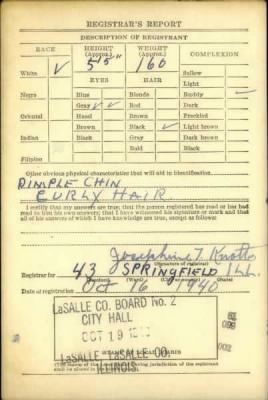 REGISTRAR'S REPORT
DESCRIPTION OF REGISTRANT
RACE HEIGHT (Approx.) WEIGHT (Approx.) COMPLEXION
White ✓ 5'5" 160 Sallow
EYES HAIR Light
Negro Blue Blonde Ruddy ✓
Gray ✓ ✓ Red Dark
Oriental Hazel Brown Freckled
Brown Black ✓ Light brown
Indian Black Gray Dark brown
Bald Black
Filipino
Other obvious physical characteristics that will aid in identification
DIMPLE CHIN
CURLY HAIR
I certify that my answers are true; that the person registered has read or has had
read to him his own answers; that I have witnessed his signature or mark and that
all of his answers of which I have knowledge are true, except as follows:
Josephine T. Knott
(Signature of registrar)
Registrar for 43 SPRINGFIELD Ill.
(Precinct) (Ward) (City or county) (State)
Date of registration Oct 16 1940
LaSALLE CO. BOARD No. 2
CITY HALL
OCT 19
LaSALLE LaSALLE CO.
ILLINOIS.